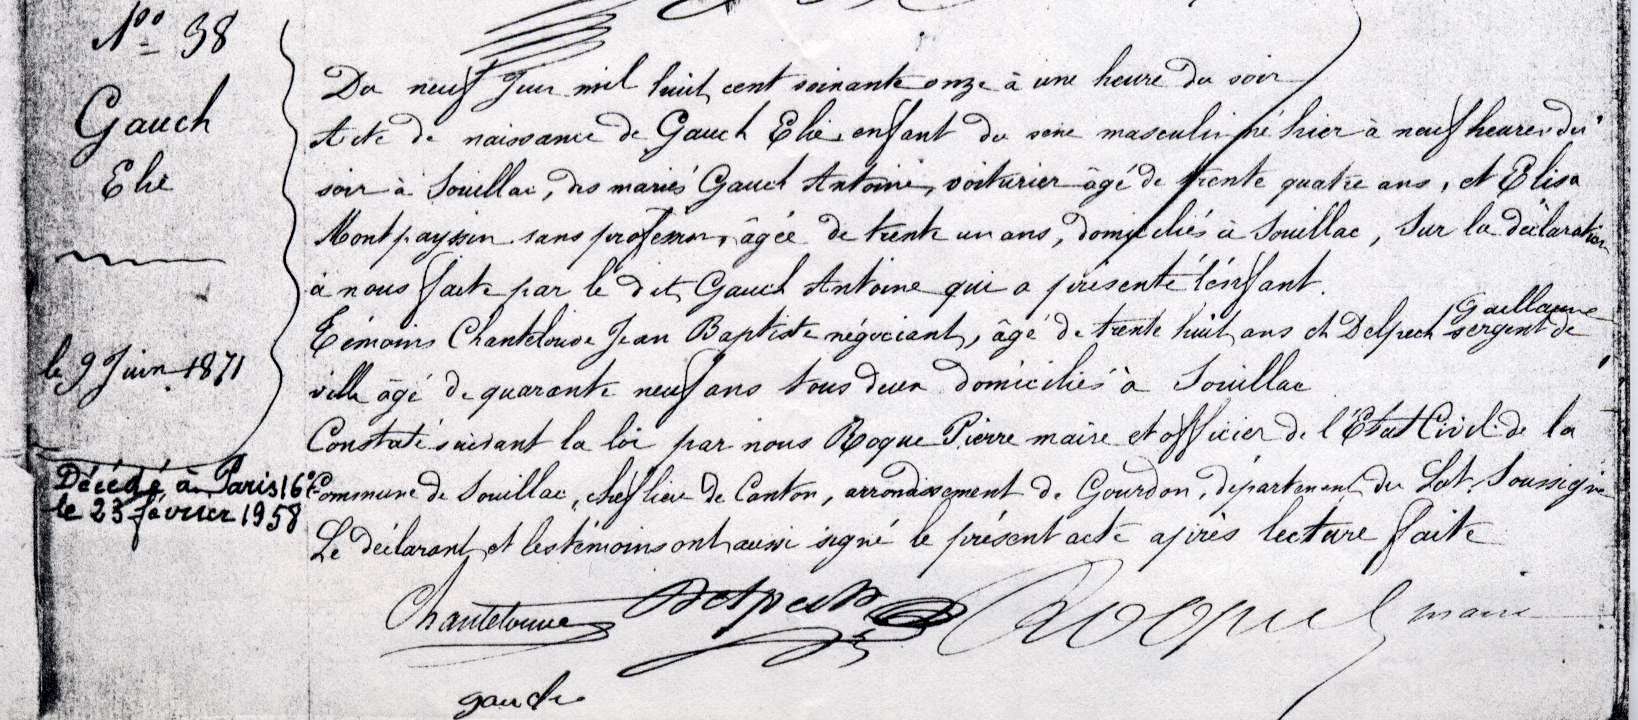 No 38
Gauch
Elie
le 9 Juin 1871
Décédé à Paris 16e
le 23 février 1958
Du neuf Juin mil huit cent soixante onze à une heure du soir
Acte de naissance de Gauch Elie enfant du sexe masculin né hier à neuf heures du
soir à Souillac, des mariés Gauch Antoine, voiturier âgé de trente quatre ans, et Elisa
Montpayssin sans profession, âgée de trente un ans, domiciliés à Souillac, Sur la déclaration
à nous faite par le dit Gauch Antoine qui a présenté l'enfant.
Témoins Chantelouve Jean Baptiste négociant, âgé de trente huit ans et Delpech Guillaume sergent de
ville âgé de quarante neuf ans tous deux domiciliés à Souillac
Constaté suivant la loi par nous Roque Pierre maire et officier de l'Etat Civil de la
Commune de Souillac, chef lieu de Canton, arrondissement de Gourdon, département du Lot. Soussigné
Le déclarant et les témoins ont aussi signé le présent acte après lecture faite
Chantelouve Delpech Roque maire
gauch